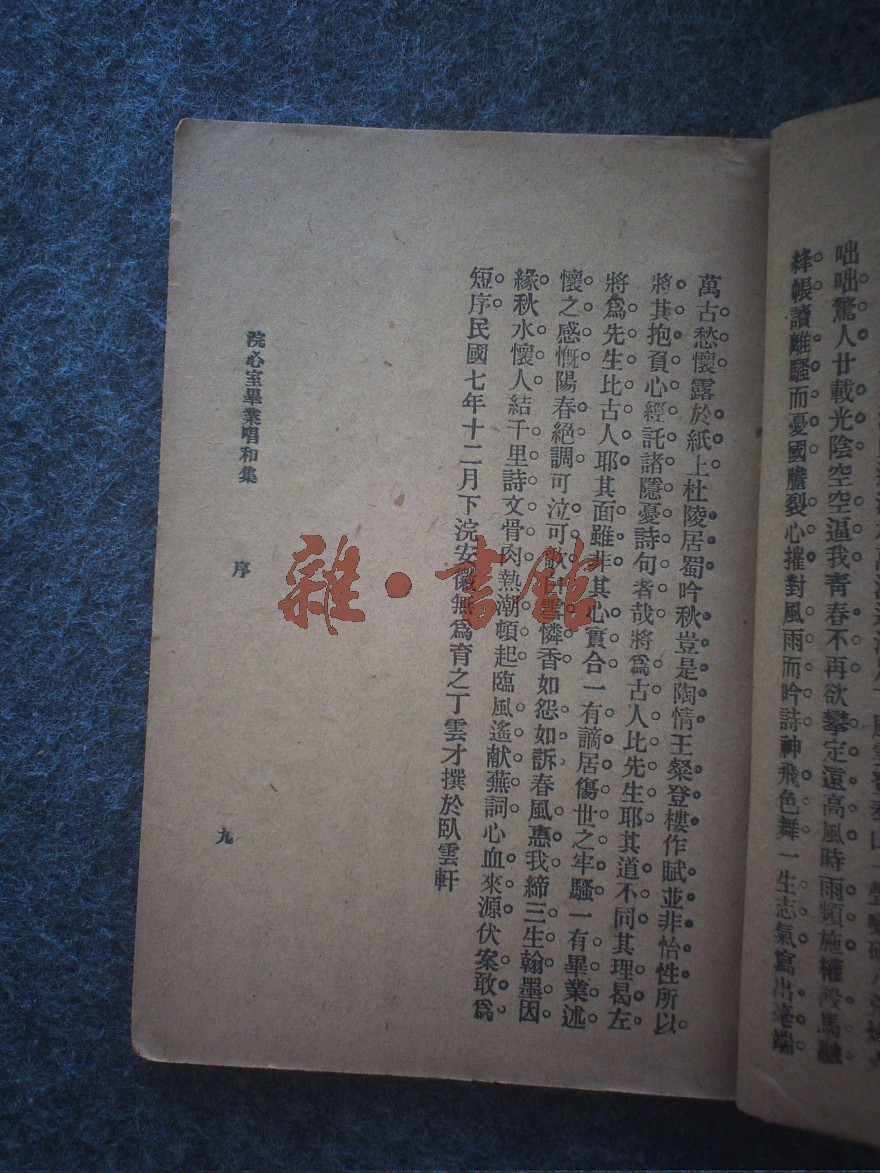 咄咄驚人廿載光陰空空逼我青春不再欲攀定遠高風時雨頻施權設馬融
絳帳讀離騷而憂國膽裂心摧對風雨而吟詩神飛色舞一生志氣寫出毫端
萬古愁懷露於紙上杜陵居蜀吟秋豈是陶情王粲登樓作賦並非怡性所以
將其抱負心經託諸隱憂詩句者哉將爲古人比先生耶其道不同其理曷左
將爲先生比古人耶其面雖非其心實合一有謫居傷世之牢騷一有畢業述
懷之感慨陽春絕調可泣可歌白雪憐香如怨如訴春風惠我締三生翰墨因
緣秋水懷人結千里詩文骨肉熱潮頓起臨風遙献蕪詞心血來源伏案敢爲
短序民國七年十二月下浣安徽無爲育之丁雲才撰於臥雲軒
浣心室畢業唱和集
序
九
雜·書館